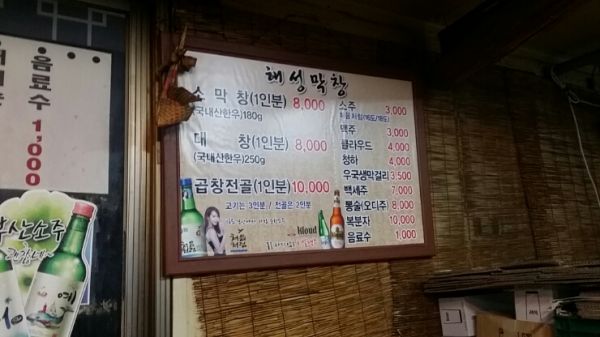 음료수
1,000
부산소주
예
해성막창
소 막 창(1인분) 8,000
(국내산한우)180g
대 창(1인분) 8,000
(국내산한우)250g
곱창전골(1인분) 10,000
고기는 3인분 / 전골은 2인분
소주 3,000
처음처럼(16도/18도)
맥주 3,000
클라우드 4,000
청하 4,000
우국생막걸리 3,500
백세주 7,000
통술(오디주) 8,000
복분자 10,000
음료수 1,000
처음처럼
Kloud